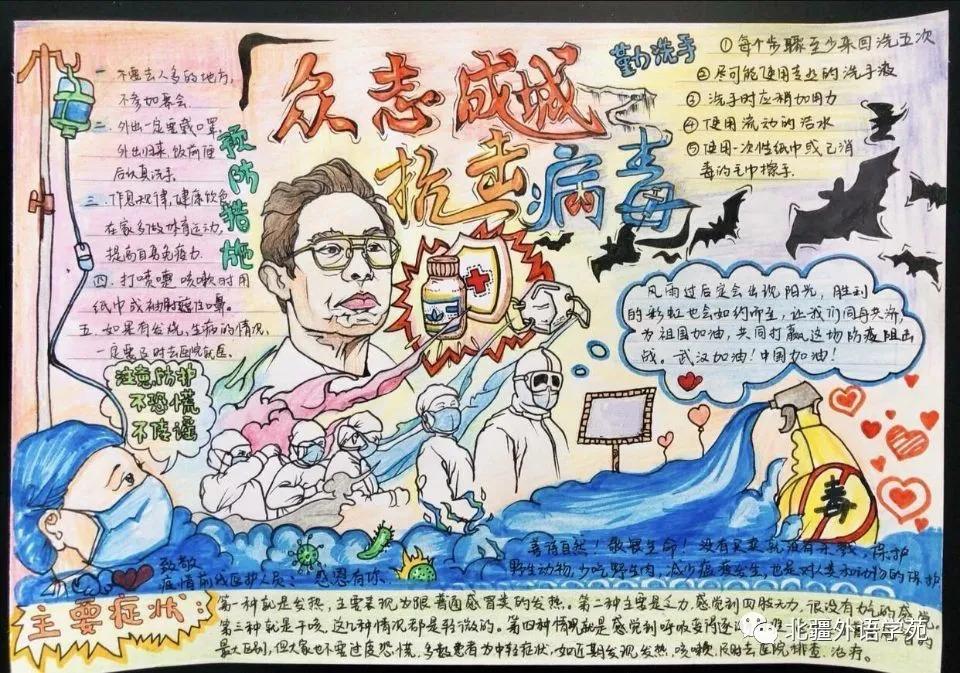 众志成城
抗击病毒
一 不要去人多的地方,
不参加聚会.
二. 外出一定要戴口罩,
外出归来 饭前便
后认真洗手.
三. 作息规律,健康饮食
在家多做体育运动,
提高自身免疫力.
四. 打喷嚏 咳嗽时用
纸巾或袖肘遮住口鼻.
五. 如果有发烧,生病的情况,
一定要及时去医院就医.
预防措施
注意防护
不恐慌
不信谣
勤洗手
① 每个步骤至少来回洗五次
② 尽可能使用专业的洗手液
③ 洗手时应稍加用力
④ 使用流动的活水
⑤ 使用一次性纸巾或已消
毒的毛巾擦手.
风雨过后定会出现 阳光, 胜利
的彩虹也会如约而至, 让我们同舟共济,
为 祖国加油, 共同打赢这场防疫阻击
战. 武汉加油! 中国加油!
毒
致敬
疫情前线医护人员: 感恩有你.
善待自然! 敬畏生命! 没有买卖就没有杀戮, 保护
野生动物, 少吃野生肉, 减少瘟疫发生, 也是对人类和动物的保护
主要症状:
第一种就是发热, 主要表现为跟普通感冒类的发热。第二种主要是乏力, 感觉到四肢无力, 很没有力气的感觉.
第三种就是干咳, 这几种情况都是轻微的。第四种情况就是感觉到呼吸变得逐
最大区别, 但大家也不要过度恐慌, 多数患者为中轻症状, 如近期发现发热, 咳嗽, 及时去医院 排查. 治疗。
北疆外语学苑